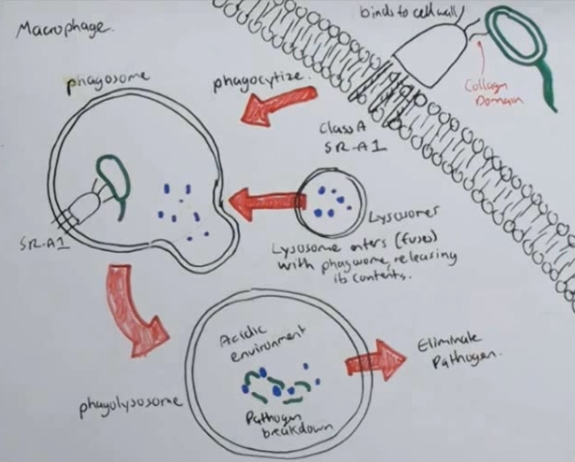 Macrophage.
binds to cell wall
Collagen
Domain
phagosome
phagocytize.
Class A
SR-A1
Lysosomes
Lysosome enters (fuses)
with phagosome, releasing
its contents.
SR-A1
Acidic
environment
Pathogen
breakdown
phagolysosome
Eliminate
Pathogen.